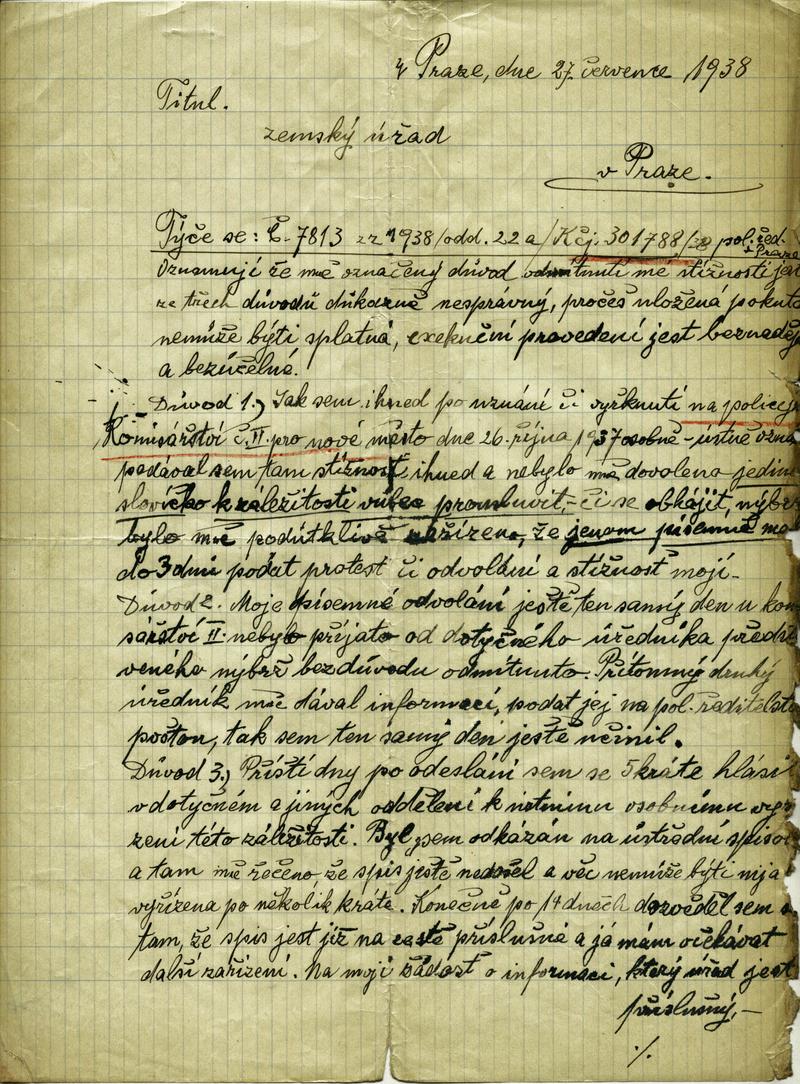 V Praze, dne 27. července 1938
Titul.
zemský úřad
v Praze.
Týče se: Č-7813 zz 1938/odd. 22 a/Kčj. 301788/ pol. řed.
v Praze
Oznamuji že mně označený důvod odmítnutí mé stížnosti jes
ze třech důvodů důkazně nesprávný, pročež uložená pokuta
nemůže býti splatná, exekuční provedení jest beznaděj
a bezúčelné.
Důvod 1.) Jak sem ihned po uznání či vyřknutí na policej
Komisařství č. II. pro nové město dne 26. října 1937 osobně-ústně
podával sem tam stížnost ihned a nebylo mně dovoleno jedine
slovíčko k záležitosti vůbec promluvit, či se obhájit, nýbrž
bylo mně podútklivě nařízeno, že jenom písemně ma
do 3 dnů podat protest či odvolání a stížnost moji-
Důvod 2. Moje písemné odvolání ještě ten samý den u kom
sařství II. nebylo přijato od dotyčného úředníka předst
veného nýbrž bezdůvodu odmítnuto. Přítomný druhý
úředník mně dával informaci, podat jej na pol. ředitelstv
poštou, tak sem ten samý den ještě učinil.
Důvod 3.) Příští dny po odeslání sem se 5 kráte hlási
v dotyčném a jiných oddělení k ústnímu osobnímu vyř
zení této záležitosti. Byl jsem odkázán na ústřední spisov
a tam mě řečeno že spis ještě nedošel a věc nemůže býti nija
vyřízena po několik kráte. Konečně po 14 dnech dozvěděl sem s
tam, že spis jest již na cestě příslušné a já mám očekávat
další zařízení. Na moji žádost o informaci, který úřad jest
příslušný, —
./.